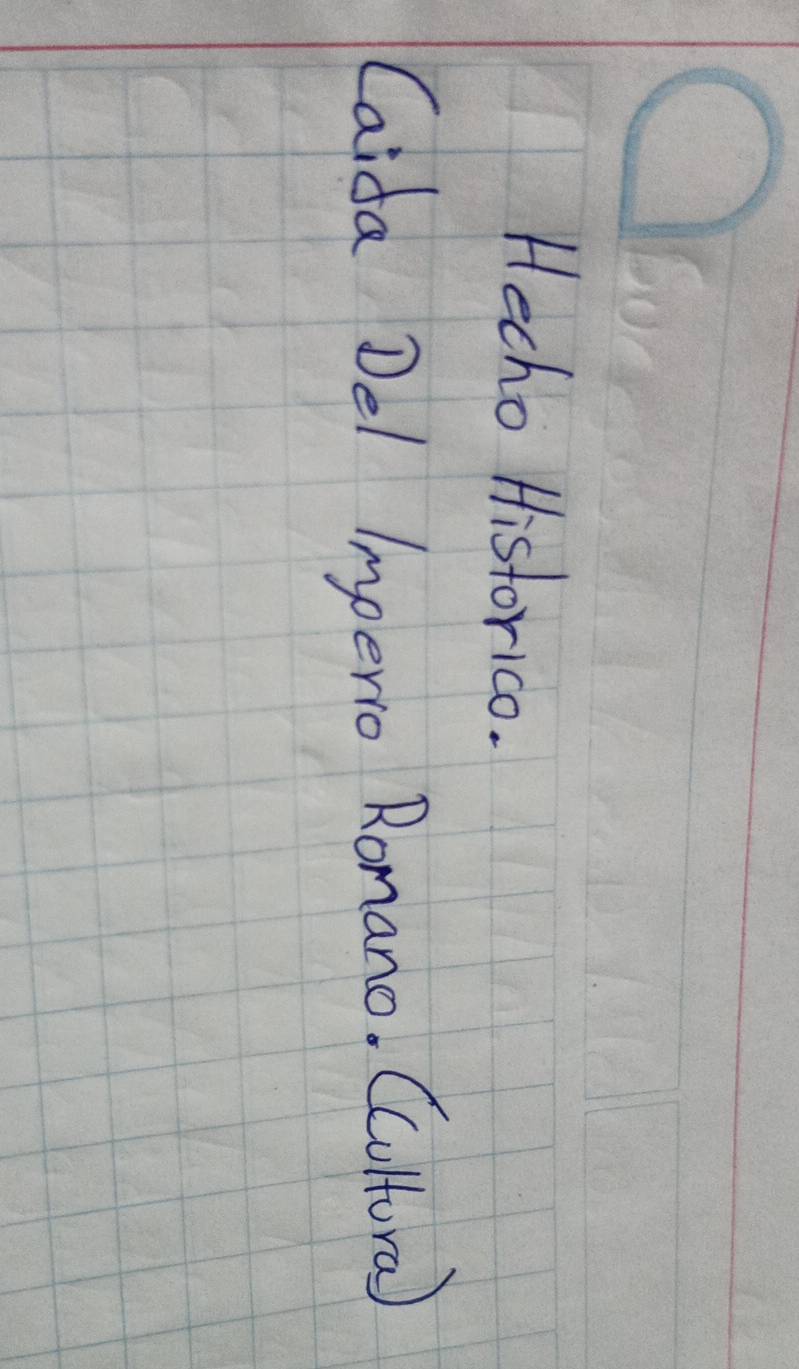 Hecho Historico.
Caida Del Imperio Romano. (Cultura)